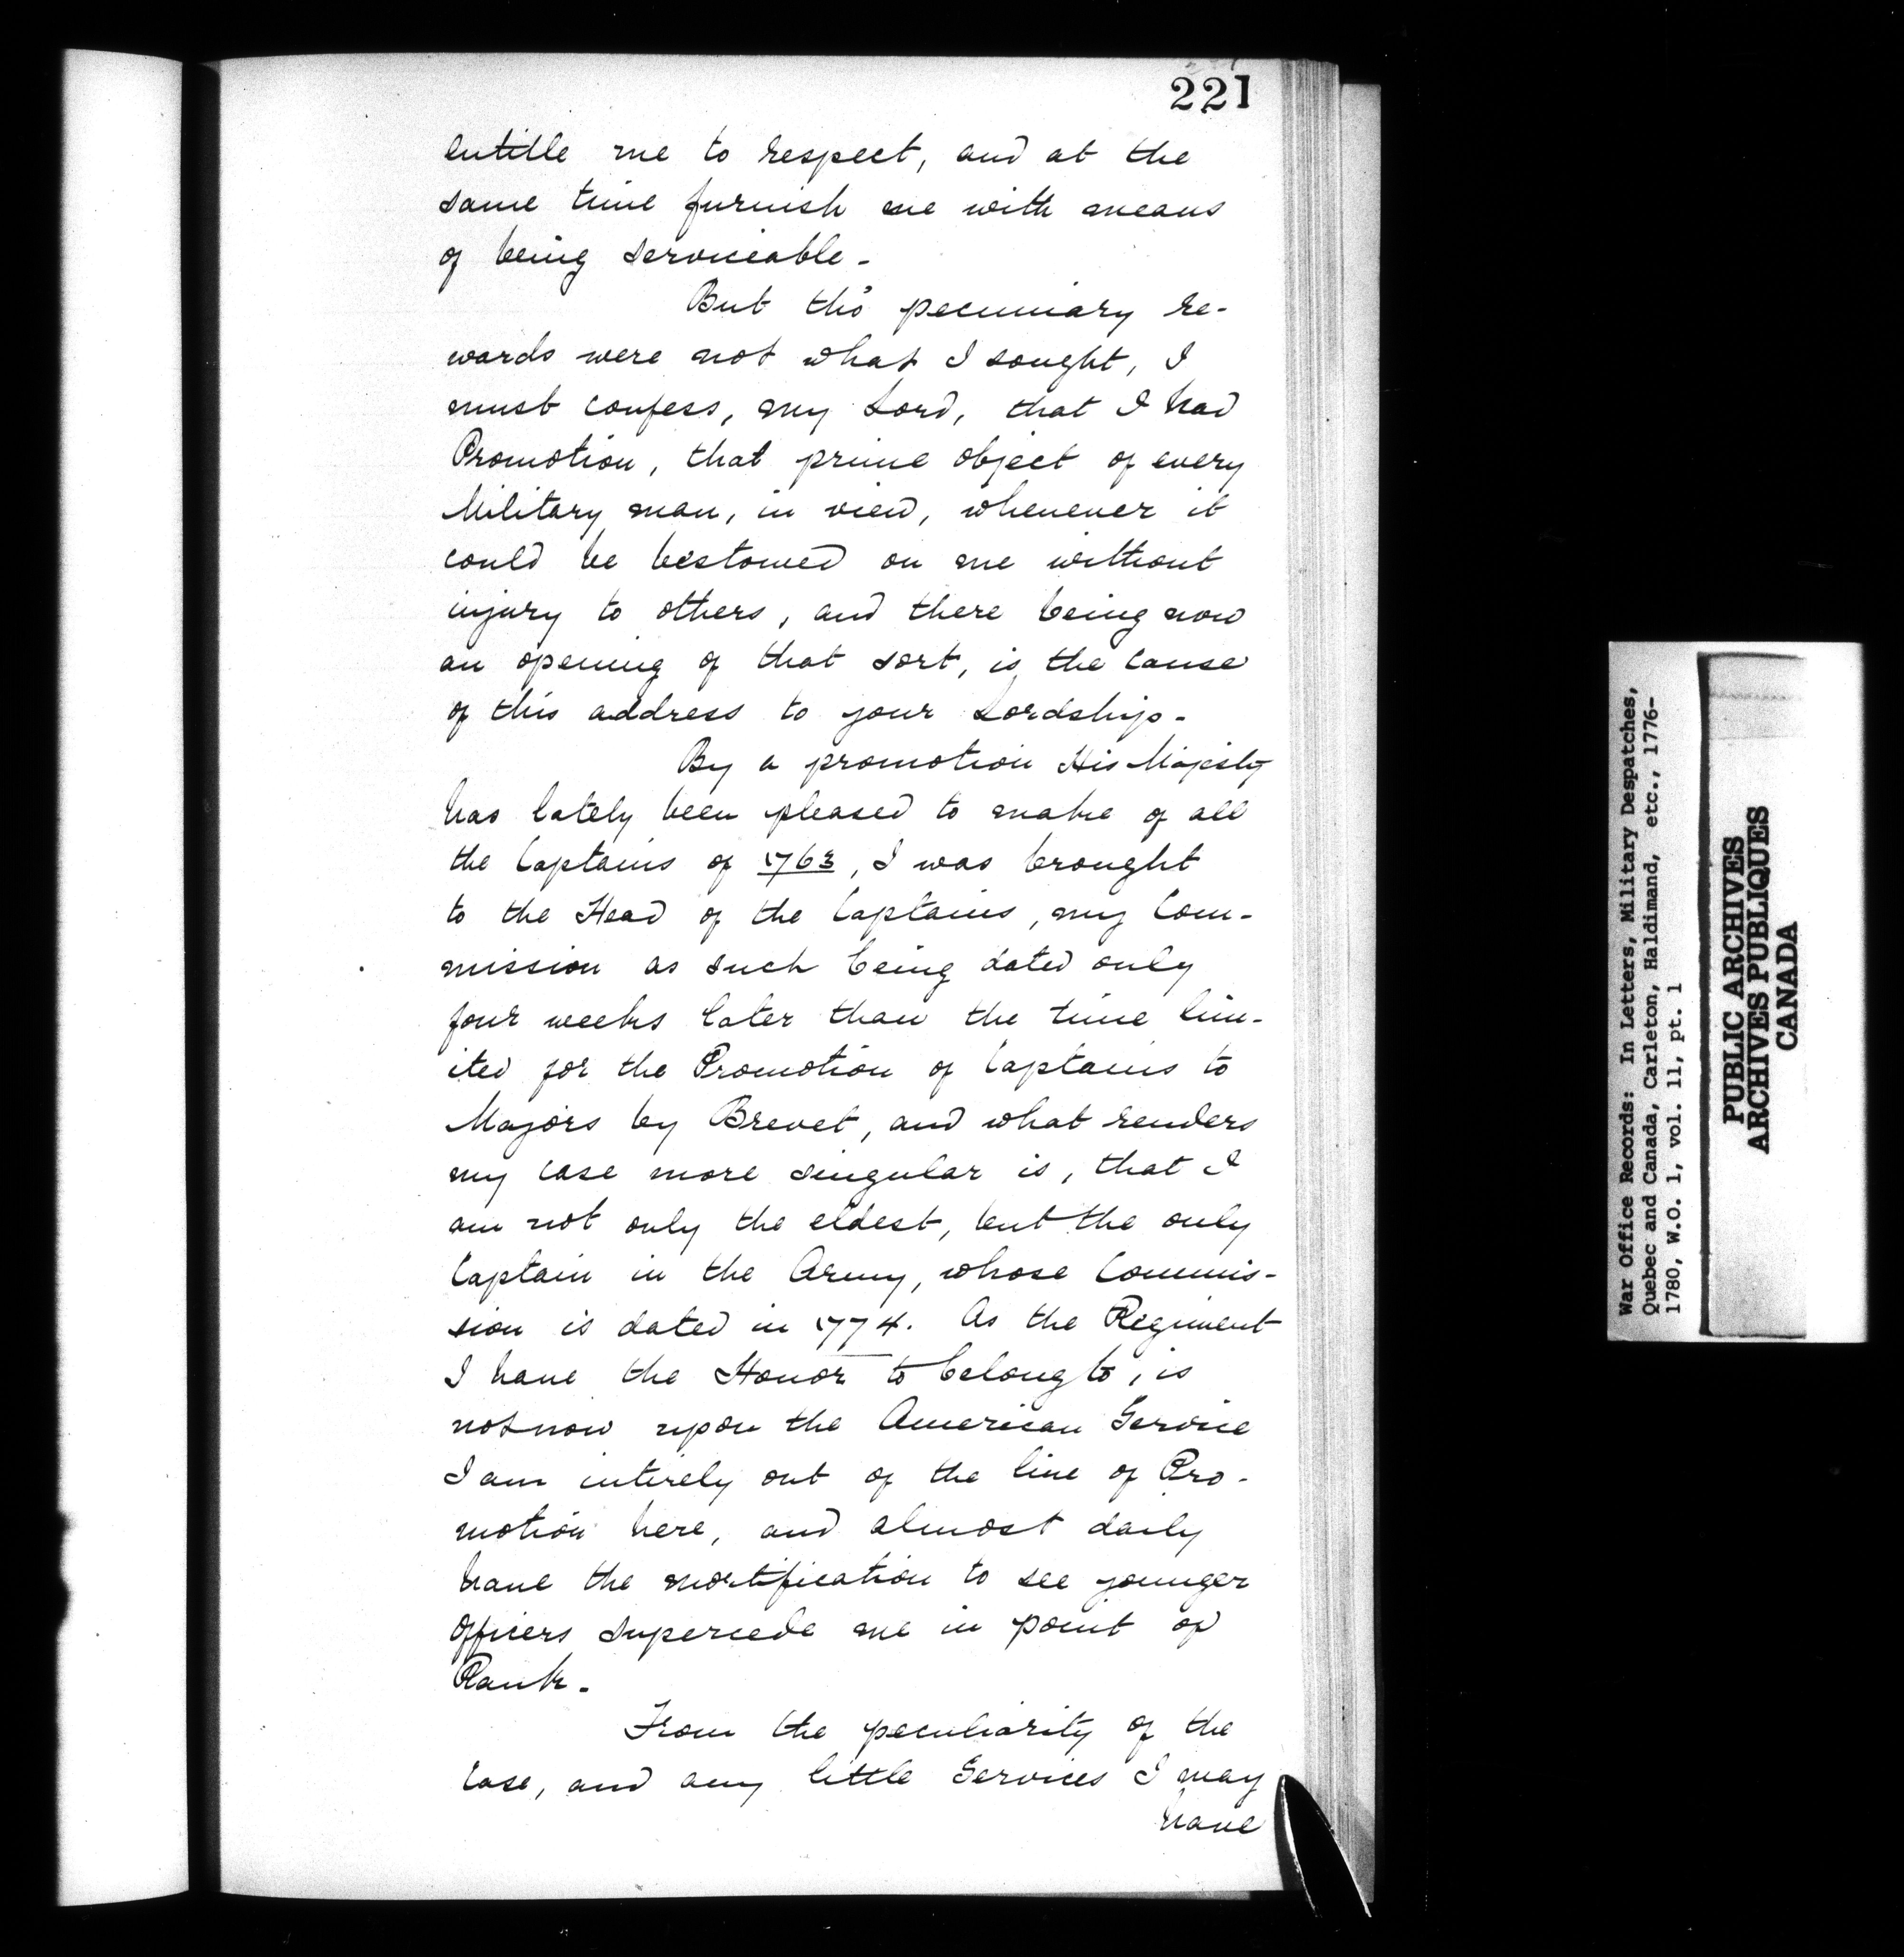 221
entitle me to respect, and at the
same time furnish me with means
of being serviceable -
But tho' pecuniary re-
wards were not what I sought, I
must confess, my Lord, that I had
Promotion, that prime object of every
Military man, in view, whenever it
could be bestowed on me without
injury to others, and there being now
an opening of that sort, is the cause
of this address to your Lordship -
By a promotion His Majesty
has lately been pleased to make of all
the Captains of 1763, I was brought
to the Head of the Captains, my Com-
mission as such being dated only
four weeks later than the time lim-
ited for the Promotion of Captains to
Majors by Brevet, and what renders
my case more singular is, that I
am not only the eldest, but the only
Captain in the Army, whose Commis-
sion is dated in 1774. As the Regiment
I have the Honor to belong to, is
not now upon the American Service
I am intirely out of the line of Pro-
motion here, and almost daily
have the mortification to see younger
Officers supercede me in point of
Rank -
From the peculiarity of the
case, and any little Services I may
have
War Office Records: In Letters, Military Despatches,
Quebec and Canada, Carleton, Haldimand, etc., 1776-
1780, W.O. 1, vol. 11, pt. 1
PUBLIC ARCHIVES
ARCHIVES PUBLIQUES
CANADA